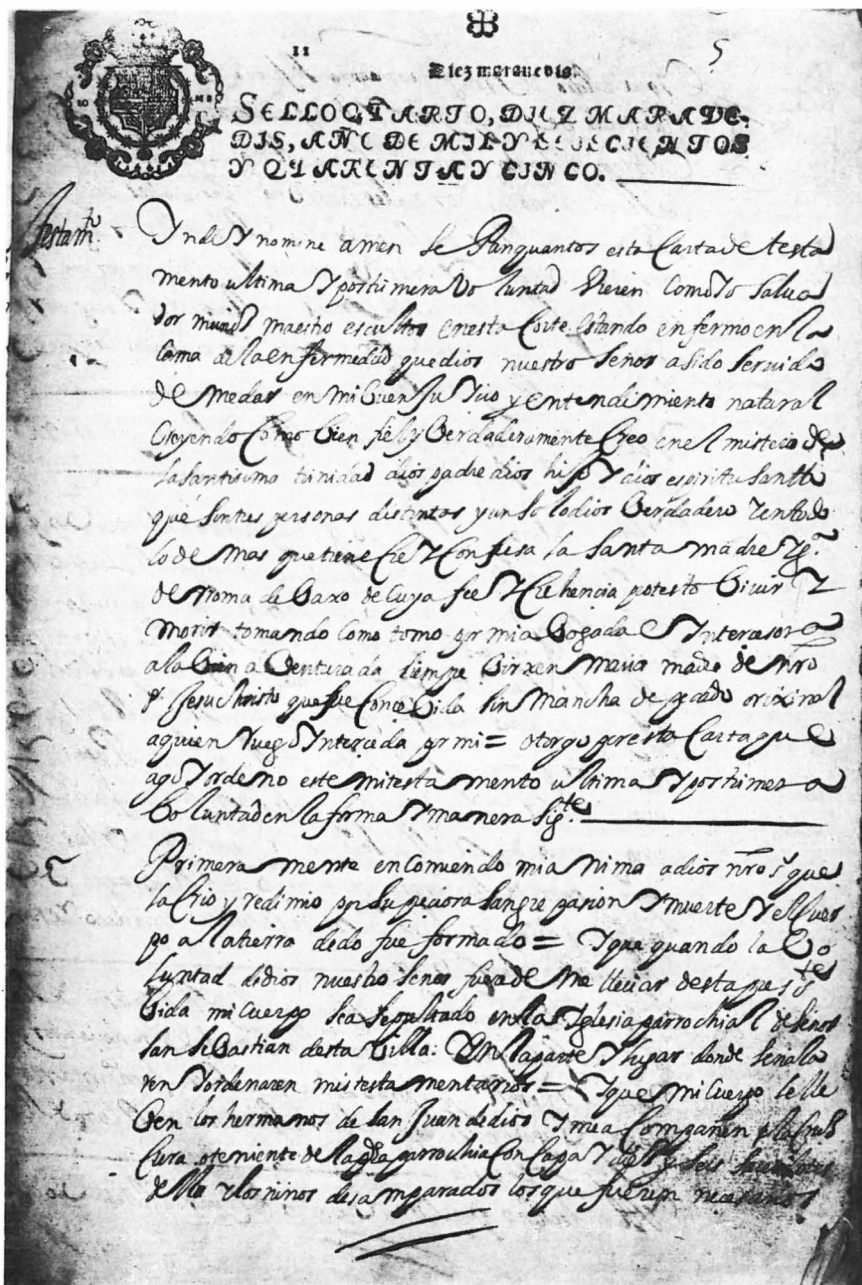 11
5
Diez maravedis.
SELLO QVARTO, DIEZ MARAVE-
DIS, AÑO DE MIL Y SEISCIENTOS
Y QVARENTA Y CINCO.
Testamto
Yn dei nomine amen Sepan quantos esta Carta de testa
mento ultima y postrimera Voluntad Vieren Como Yo Salua
dor muñoz maestro escultor en esta Corte estando enfermo en la
Cama de la enfermedad que dios nuestro Señor a sido Seruido
de me dar en mi buen Juycio y entendimiento natural
Creyendo Como bien fiel y Verdaderamente Creo en el misterio de
la santisima trinidad dios padre dios hijo y dios espiritu santto
que son tres personas distintas y un solo dios Verdadero y en todo
lo demas que tiene Cre y Confiesa la santa madre Yga
de Rroma debaxo de Cuya fee y Crehencia protesto Viuir y
morir tomando como tomo por mi abogada e Yntercesora
a la bien abenturada siempre birxen maria madre de nro
sr Jesuchristo que fue Concebida sin mancha de pecado orixinal
a quien Ruego Ynterceda por mi = otorgo por esta Carta que
ago y ordeno este mi testamento ultima y postrimera
Voluntad en la forma y manera sigte
Primera mente encomiendo mi anima a dios nro sr que
la Crio y redimio por su preciosa sangre pasion y muerte y el Cuer
po a la tierra de do fue formado = Y que quando la bo
luntad de dios nuestro señor fuere de me lleuar desta preste
bida mi cuerpo sea sepultado en la Yglesia parrochial de señor
san sebastian desta billa: En la parte y lugar donde señala
ren y ordenaren mis testamentarios = Y que mi Cuerpo le lle
ben los hermanos de san Juan de dios y me acompañen la Cruz
Cura o teniente de la dha parrochia Con Capa y seis sacerdotes
della y los niños desamparados los que fueren necesarios